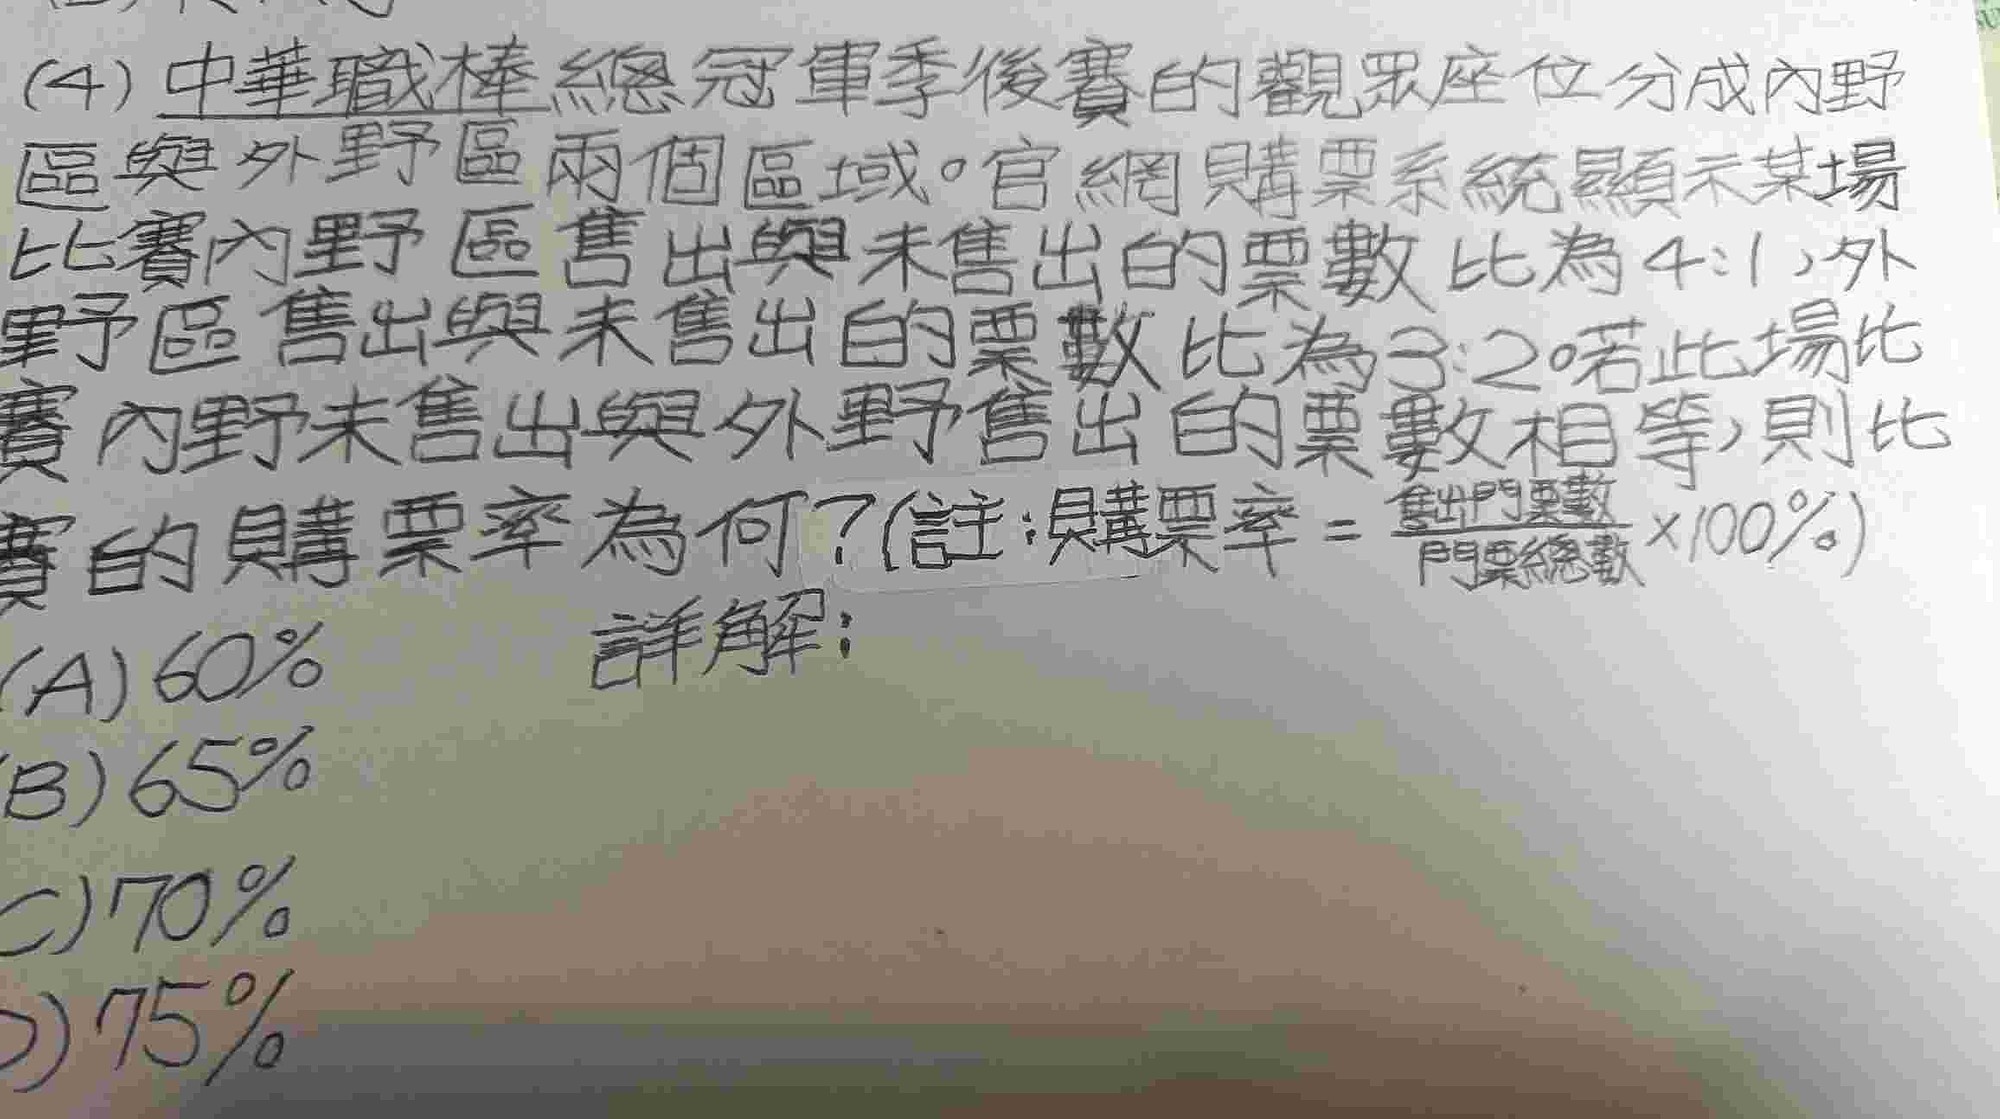 (4)中華職棒總冠軍季後賽的觀眾座位分成內野
區與外野區兩個區域。官網購票系統顯示某場
比賽內野區售出與未售出的票數比為4:1,外
野區售出與未售出的票數比為3:2。若此場比
賽內野未售出與外野售出的票數相等,則比
賽的購票率為何?(註:購票率=售出門票數/門票總數×100%)
詳解:
(A)60%
(B)65%
C)70%
D)75%